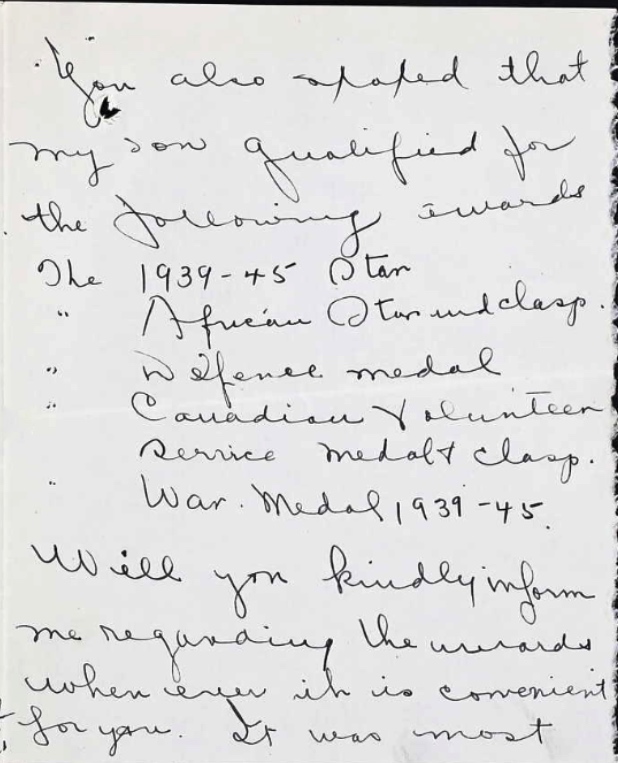 You also stated that
my son qualified for
the following awards
The 1939-45 Star
" African Star and clasp.
" Defence medal
" Canadian Volunteer
Service medal & clasp.
" War. Medal 1939-45.
Will you kindly inform
me regarding the awards
when ever it is convenient
for you. It was most